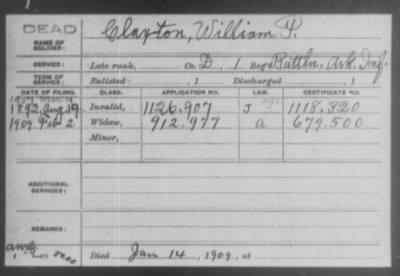 DEAD
NAME OF SOLDIER: Claxton, William P.
SERVICE: Late rank, Co. D, 1 Reg't Battln. Ark. Inf.
TERM OF SERVICE: Enlisted , 1 Discharged , 1
DATE OF FILING. CLASS. APPLICATION NO. LAW. CERTIFICATE NO.
1892 Aug 19 Invalid, 1126.907 J 1118.320
1909 Feb 2 Widow, 912.977 a 679.500
Minor,
ADDITIONAL SERVICES:
REMARKS:
Died Jan 14, 1909, at